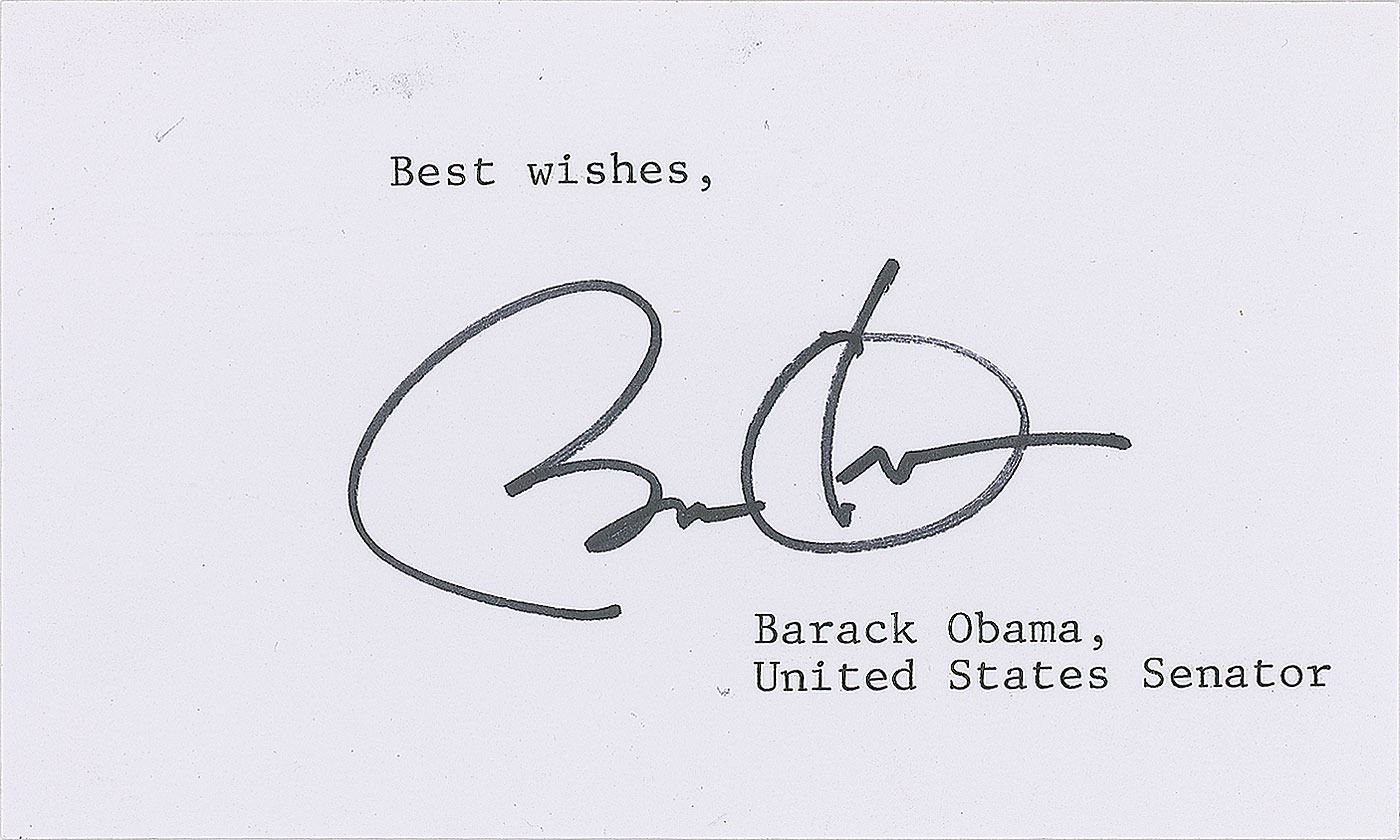 Best wishes,
Barack Obama,
United States Senator